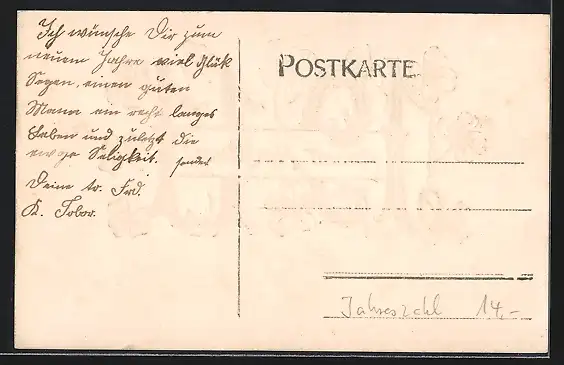 Ich wünsche Dir zum
neuem Jahre viel Glük
Segen, einen guten
Mann ein recht langes
Leben und zuletzt die
ewige Seligkeit. sendet
Deine tr. Frd.
K. Tobor.
POSTKARTE
Jahreszahl 14,-